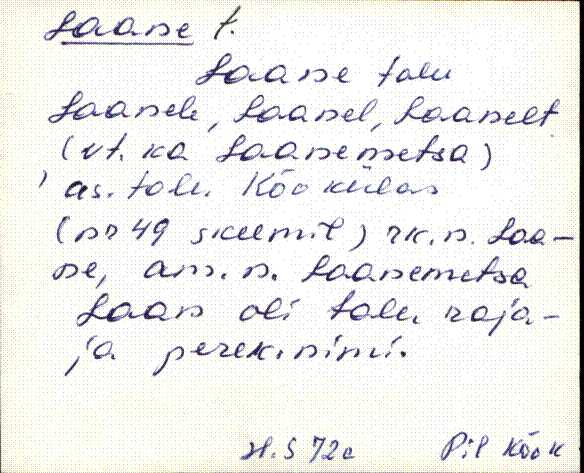 Laane t.
Laane talu
Laanele, Laanel, Laanelt
(vt. ka Laanemetsa)
as. talu Kõo külas
(nr 49 skeemil) rk. n. Laa-
ne, am. n. Laanemetsa
Laan oli talu raja-
ja perek. nimi.
Pil Kõo k